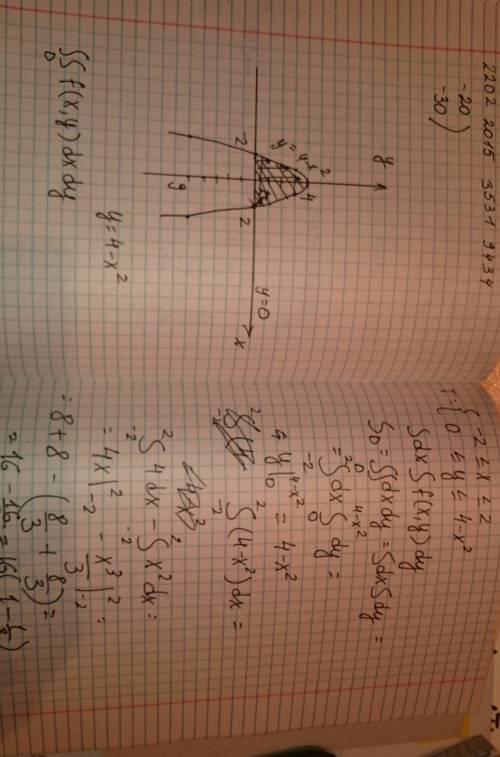 2202 2015 3531 9434
-20
-30)
y
y=4-x²
4
-2
2
y=0
x
9
y=4-x²
∬f(x,y)dxdy
D
Г:{ -2≤x≤2
0≤y≤4-x²
∫dx∫f(x,y)dy
S_D=∬dxdy=∫dx∫dy=
=∫_{-2}^{2}dx∫_{0}^{4-x²}dy=
y|_{0}^{4-x²}=4-x²
∫_{-2}^{2}(4-x²)dx=
∫_{-2}^{2}4dx-∫_{-2}^{2}x²dx=
=4x|_{-2}^{2}-x³/3|_{-2}^{2}=
=8+8-(8/3+8/3)=
=16-16/3=16(1-1/3)